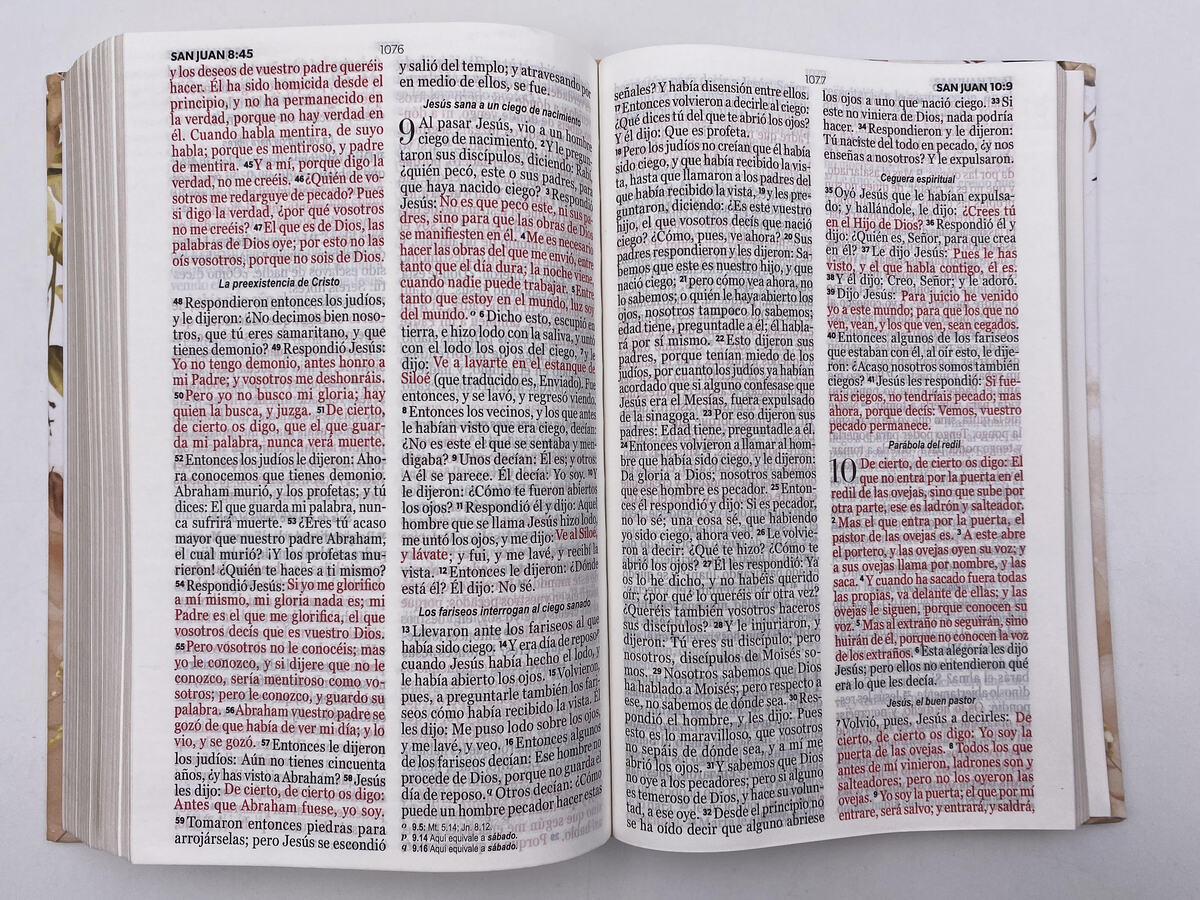 SAN JUAN 8:45
1076
y los deseos de vuestro padre queréis
hacer. Él ha sido homicida desde el
principio, y no ha permanecido en
la verdad, porque no hay verdad en
él. Cuando habla mentira, de suyo
habla; porque es mentiroso, y padre
de mentira. 45 Y a mí, porque digo la
verdad, no me creéis. 46 ¿Quién de vo-
sotros me redarguye de pecado? Pues
si digo la verdad, ¿por qué vosotros
no me creéis? 47 El que es de Dios, las
palabras de Dios oye; por esto no las
oís vosotros, porque no sois de Dios.
La preexistencia de Cristo
48 Respondieron entonces los judíos,
y le dijeron: ¿No decimos bien noso-
tros, que tú eres samaritano, y que
tienes demonio? 49 Respondió Jesús:
Yo no tengo demonio, antes honro a
mi Padre; y vosotros me deshonráis.
50 Pero yo no busco mi gloria; hay
quien la busca, y juzga. 51 De cierto,
de cierto os digo, que el que guar-
da mi palabra, nunca verá muerte.
52 Entonces los judíos le dijeron: Aho-
ra conocemos que tienes demonio.
Abraham murió, y los profetas; y tú
dices: El que guarda mi palabra, nun-
ca sufrirá muerte. 53 ¿Eres tú acaso
mayor que nuestro padre Abraham,
el cual murió? ¡Y los profetas mu-
rieron! ¿Quién te haces a ti mismo?
54 Respondió Jesús: Si yo me glorifico
a mí mismo, mi gloria nada es; mi
Padre es el que me glorifica, el que
vosotros decís que es vuestro Dios.
55 Pero vosotros no le conocéis; mas
yo le conozco, y si dijere que no le
conozco, sería mentiroso como vo-
sotros; pero le conozco, y guardo su
palabra. 56 Abraham vuestro padre se
gozó de que había de ver mi día; y lo
vio, y se gozó. 57 Entonces le dijeron
los judíos: Aún no tienes cincuenta
años, ¿y has visto a Abraham? 58 Jesús
les dijo: De cierto, de cierto os digo:
Antes que Abraham fuese, yo soy.
59 Tomaron entonces piedras para
arrojárselas; pero Jesús se escondió
y salió del templo; y atravesando por
en medio de ellos, se fue.
Jesús sana a un ciego de nacimiento
9 Al pasar Jesús, vio a un hombre
ciego de nacimiento. 2 Y le pregun-
taron sus discípulos, diciendo: Rabí,
¿quién pecó, este o sus padres, para
que haya nacido ciego? 3 Respondió
Jesús: No es que pecó este, ni sus pa-
dres, sino para que las obras de Dios
se manifiesten en él. 4 Me es necesario
hacer las obras del que me envió, entre
tanto que el día dura; la noche viene,
cuando nadie puede trabajar. 5 Entre
tanto que estoy en el mundo, luz soy
del mundo. o 6 Dicho esto, escupió en
tierra, e hizo lodo con la saliva, y untó
con el lodo los ojos del ciego, 7 y le
dijo: Ve a lavarte en el estanque de
Siloé (que traducido es, Enviado). Fue
entonces, y se lavó, y regresó viendo.
8 Entonces los vecinos, y los que antes
le habían visto que era ciego, decían:
¿No es este el que se sentaba y men-
digaba? 9 Unos decían: Él es; y otros:
A él se parece. Él decía: Yo soy. 10 Y
le dijeron: ¿Cómo te fueron abiertos
los ojos? 11 Respondió él y dijo: Aquel
hombre que se llama Jesús hizo lodo,
me untó los ojos, y me dijo: Ve al Siloé,
y lávate; y fui, y me lavé, y recibí la
vista. 12 Entonces le dijeron: ¿Dónde
está él? Él dijo: No sé.
Los fariseos interrogan al ciego sanado
13 Llevaron ante los fariseos al que
había sido ciego. 14 Y era día de reposo p
cuando Jesús había hecho el lodo, y
le había abierto los ojos. 15 Volvieron,
pues, a preguntarle también los fari-
seos cómo había recibido la vista. Él
les dijo: Me puso lodo sobre los ojos,
y me lavé, y veo. 16 Entonces algunos
de los fariseos decían: Ese hombre no
procede de Dios, porque no guarda el
día de reposo. q Otros decían: ¿Cómo
puede un hombre pecador hacer estas
o 9.5: Mt. 5.14; Jn. 8.12.
p 9.14 Aquí equivale a sábado.
q 9.16 Aquí equivale a sábado.
1077
SAN JUAN 10:9
señales? Y había disensión entre ellos.
17 Entonces volvieron a decirle al ciego:
¿Qué dices tú del que te abrió los ojos?
Y él dijo: Que es profeta.
18 Pero los judíos no creían que él había
sido ciego, y que había recibido la vis-
ta, hasta que llamaron a los padres del
que había recibido la vista, 19 y les pre-
guntaron, diciendo: ¿Es este vuestro
hijo, el que vosotros decís que nació
ciego? ¿Cómo, pues, ve ahora? 20 Sus
padres respondieron y les dijeron: Sa-
bemos que este es nuestro hijo, y que
nació ciego; 21 pero cómo vea ahora, no
lo sabemos; o quién le haya abierto los
ojos, nosotros tampoco lo sabemos;
edad tiene, preguntadle a él; él habla-
rá por sí mismo. 22 Esto dijeron sus
padres, porque tenían miedo de los
judíos, por cuanto los judíos ya habían
acordado que si alguno confesase que
Jesús era el Mesías, fuera expulsado
de la sinagoga. 23 Por eso dijeron sus
padres: Edad tiene, preguntadle a él.
24 Entonces volvieron a llamar al hom-
bre que había sido ciego, y le dijeron:
Da gloria a Dios; nosotros sabemos
que ese hombre es pecador. 25 Enton-
ces él respondió y dijo: Si es pecador,
no lo sé; una cosa sé, que habiendo
yo sido ciego, ahora veo. 26 Le volvie-
ron a decir: ¿Qué te hizo? ¿Cómo te
abrió los ojos? 27 Él les respondió: Ya
os lo he dicho, y no habéis querido
oír; ¿por qué lo queréis oír otra vez?
¿Queréis también vosotros haceros
sus discípulos? 28 Y le injuriaron, y
dijeron: Tú eres su discípulo; pero
nosotros, discípulos de Moisés so-
mos. 29 Nosotros sabemos que Dios
ha hablado a Moisés; pero respecto a
ese, no sabemos de dónde sea. 30 Res-
pondió el hombre, y les dijo: Pues
esto es lo maravilloso, que vosotros
no sepáis de dónde sea, y a mí me
abrió los ojos. 31 Y sabemos que Dios
no oye a los pecadores; pero si alguno
es temeroso de Dios, y hace su volun-
tad, a ese oye. 32 Desde el principio no
se ha oído decir que alguno abriese
los ojos a uno que nació ciego. 33 Si
este no viniera de Dios, nada podría
hacer. 34 Respondieron y le dijeron:
Tú naciste del todo en pecado, ¿y nos
enseñas a nosotros? Y le expulsaron.
Ceguera espiritual
35 Oyó Jesús que le habían expulsa-
do; y hallándole, le dijo: ¿Crees tú
en el Hijo de Dios? 36 Respondió él y
dijo: ¿Quién es, Señor, para que crea
en él? 37 Le dijo Jesús: Pues le has
visto, y el que habla contigo, él es.
38 Y él dijo: Creo, Señor; y le adoró.
39 Dijo Jesús: Para juicio he venido
yo a este mundo; para que los que no
ven, vean, y los que ven, sean cegados.
40 Entonces algunos de los fariseos
que estaban con él, al oír esto, le dije-
ron: ¿Acaso nosotros somos también
ciegos? 41 Jesús les respondió: Si fue-
rais ciegos, no tendríais pecado; mas
ahora, porque decís: Vemos, vuestro
pecado permanece.
Parábola del redil
10 De cierto, de cierto os digo: El
que no entra por la puerta en el
redil de las ovejas, sino que sube por
otra parte, ese es ladrón y salteador.
2 Mas el que entra por la puerta, el
pastor de las ovejas es. 3 A este abre
el portero, y las ovejas oyen su voz; y
a sus ovejas llama por nombre, y las
saca. 4 Y cuando ha sacado fuera todas
las propias, va delante de ellas; y las
ovejas le siguen, porque conocen su
voz. 5 Mas al extraño no seguirán, sino
huirán de él, porque no conocen la voz
de los extraños. 6 Esta alegoría les dijo
Jesús; pero ellos no entendieron qué
era lo que les decía.
Jesús, el buen pastor
7 Volvió, pues, Jesús a decirles: De
cierto, de cierto os digo: Yo soy la
puerta de las ovejas. 8 Todos los que
antes de mí vinieron, ladrones son y
salteadores; pero no los oyeron las
ovejas. 9 Yo soy la puerta; el que por mí
entrare, será salvo; y entrará, y saldrá,